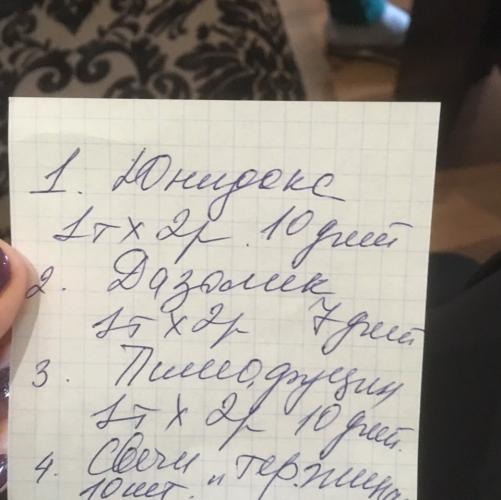 1. Юнидокс
1т х 2р. 10 дней
2. Дазолик
1т х 2р 7 дней
3. Пимафуцин
1т х 2р 10 дней.
4. Свечи "Тержинан
10 шт.